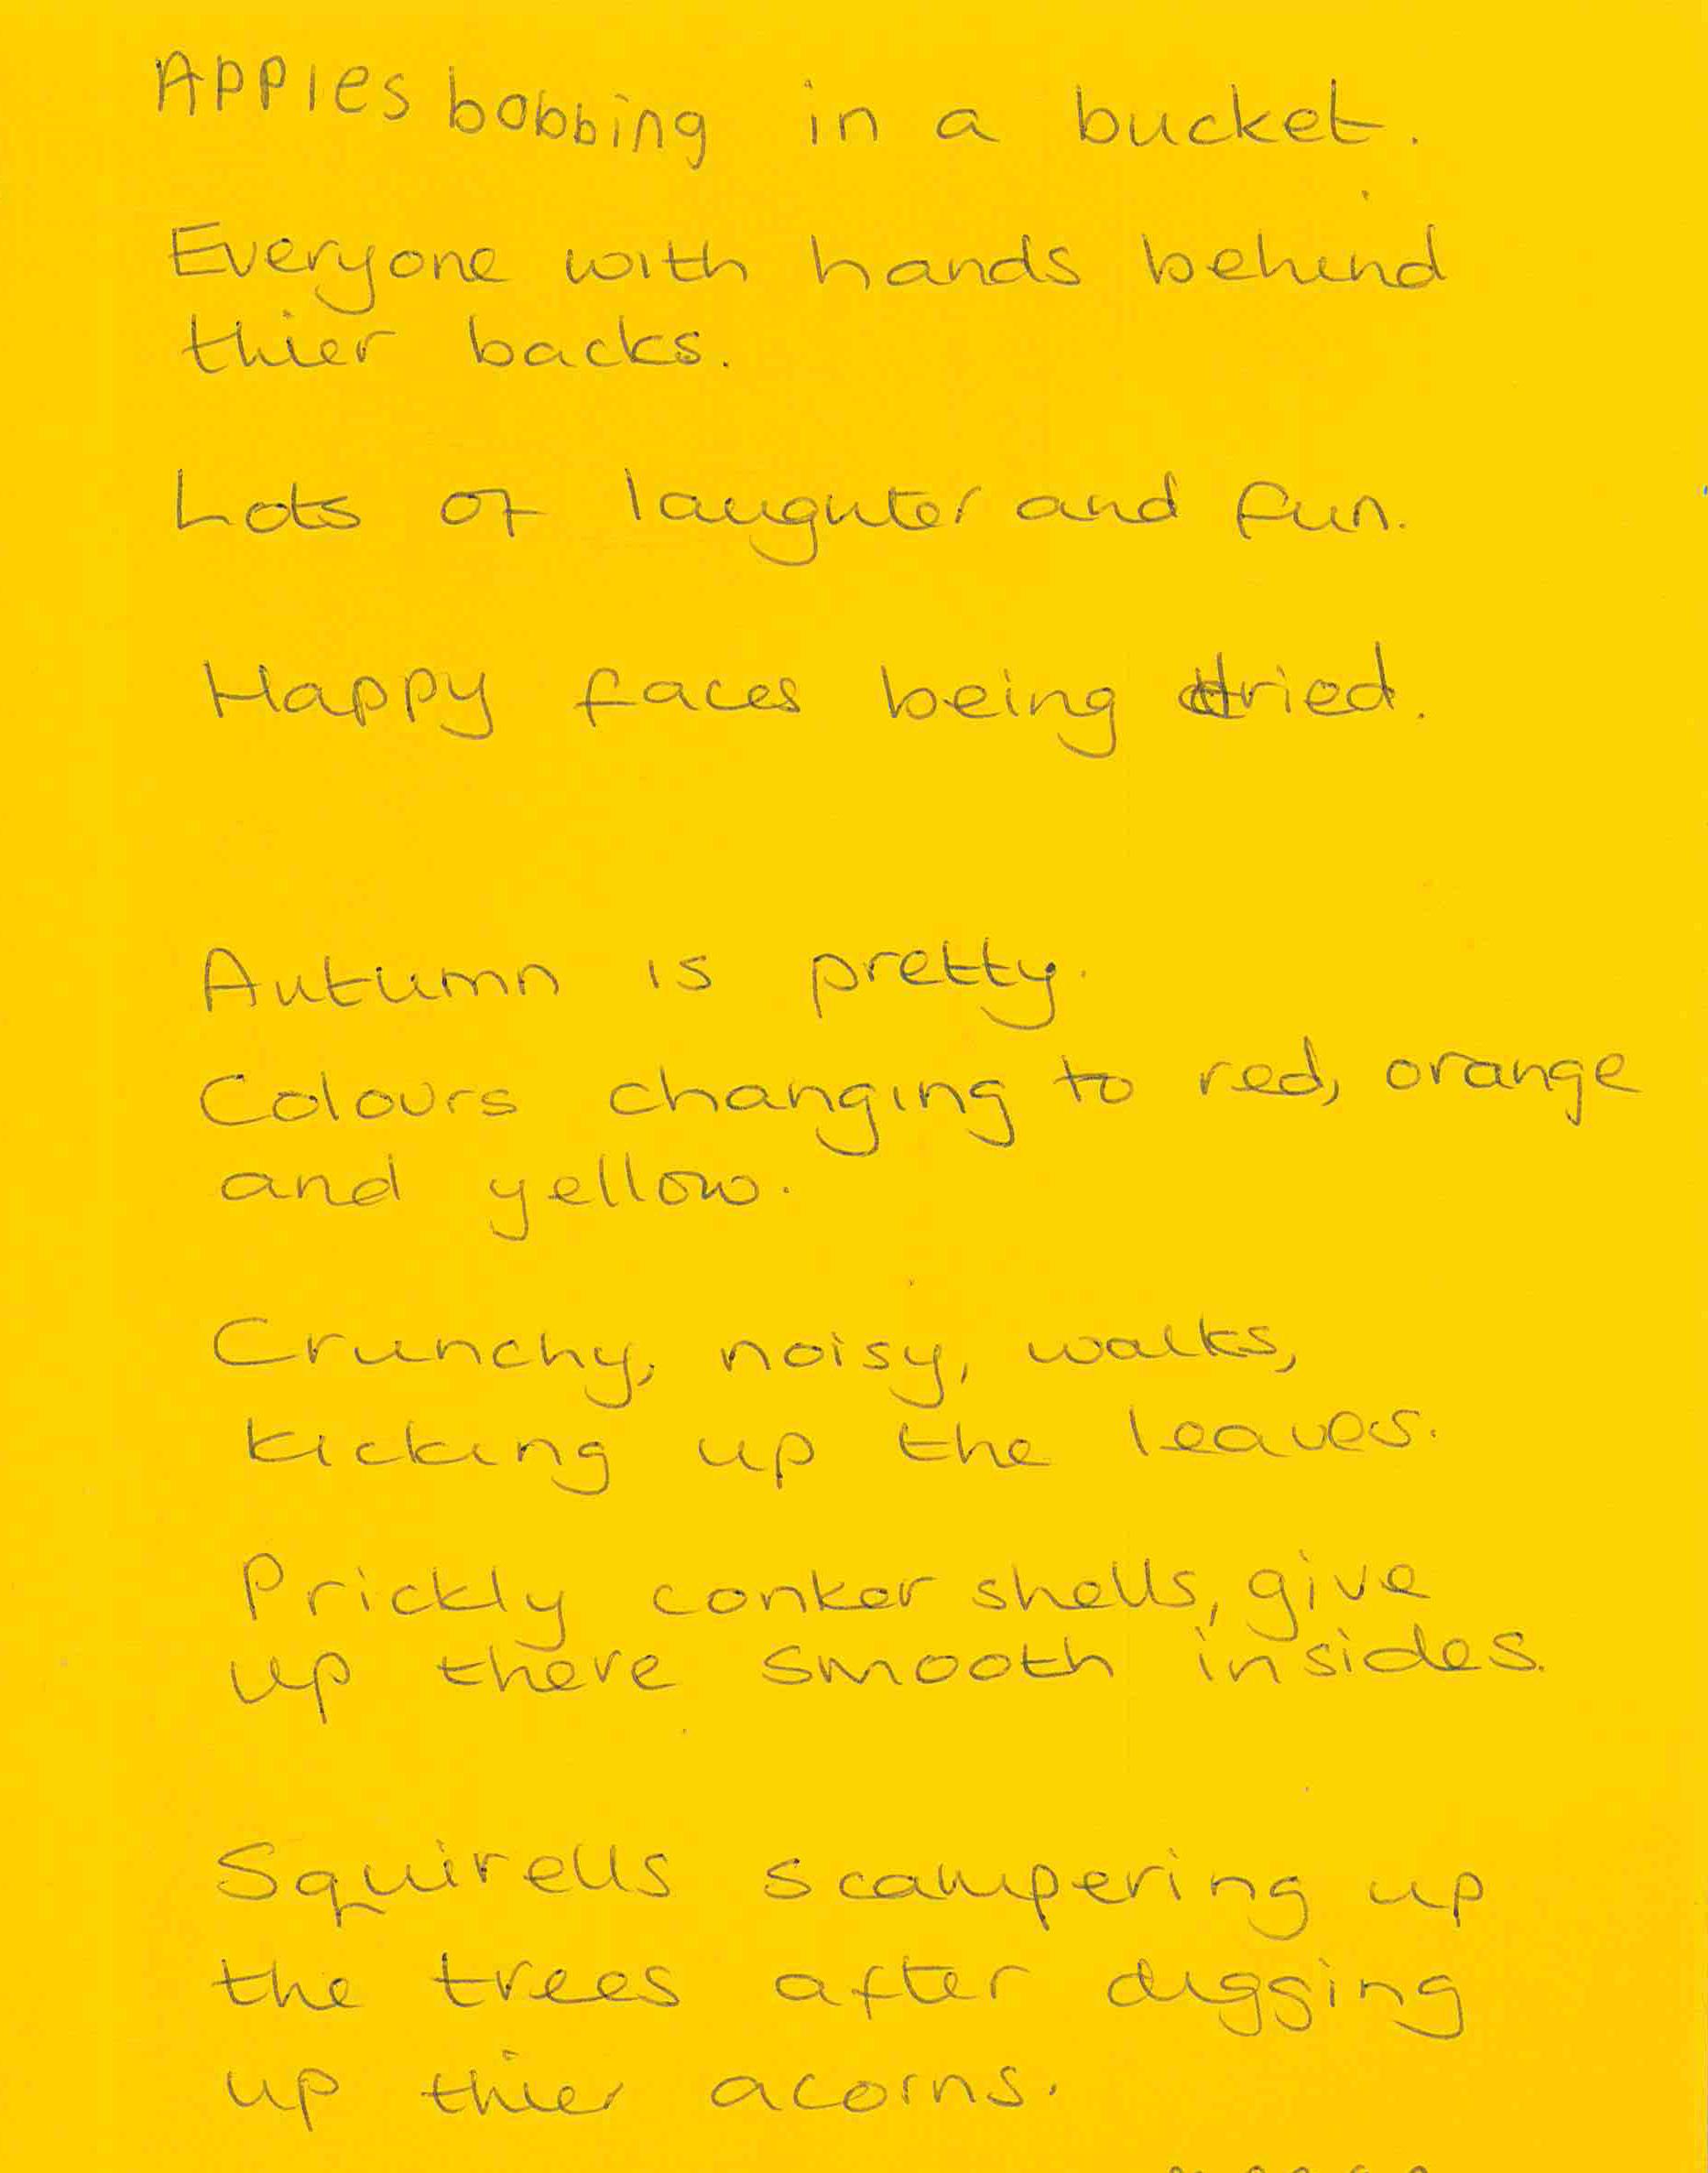 Apples bobbing in a bucket.
Everyone with hands behind
thier backs.
Lots of laughter and fun.
Happy faces being dried.
Autumn is pretty.
Colours changing to red, orange
and yellow.
Crunchy, noisy, walks,
kicking up the leaves.
Prickly conker shells, give
up there smooth insides.
Squirells scampering up
the trees after digging
up thier acorns.